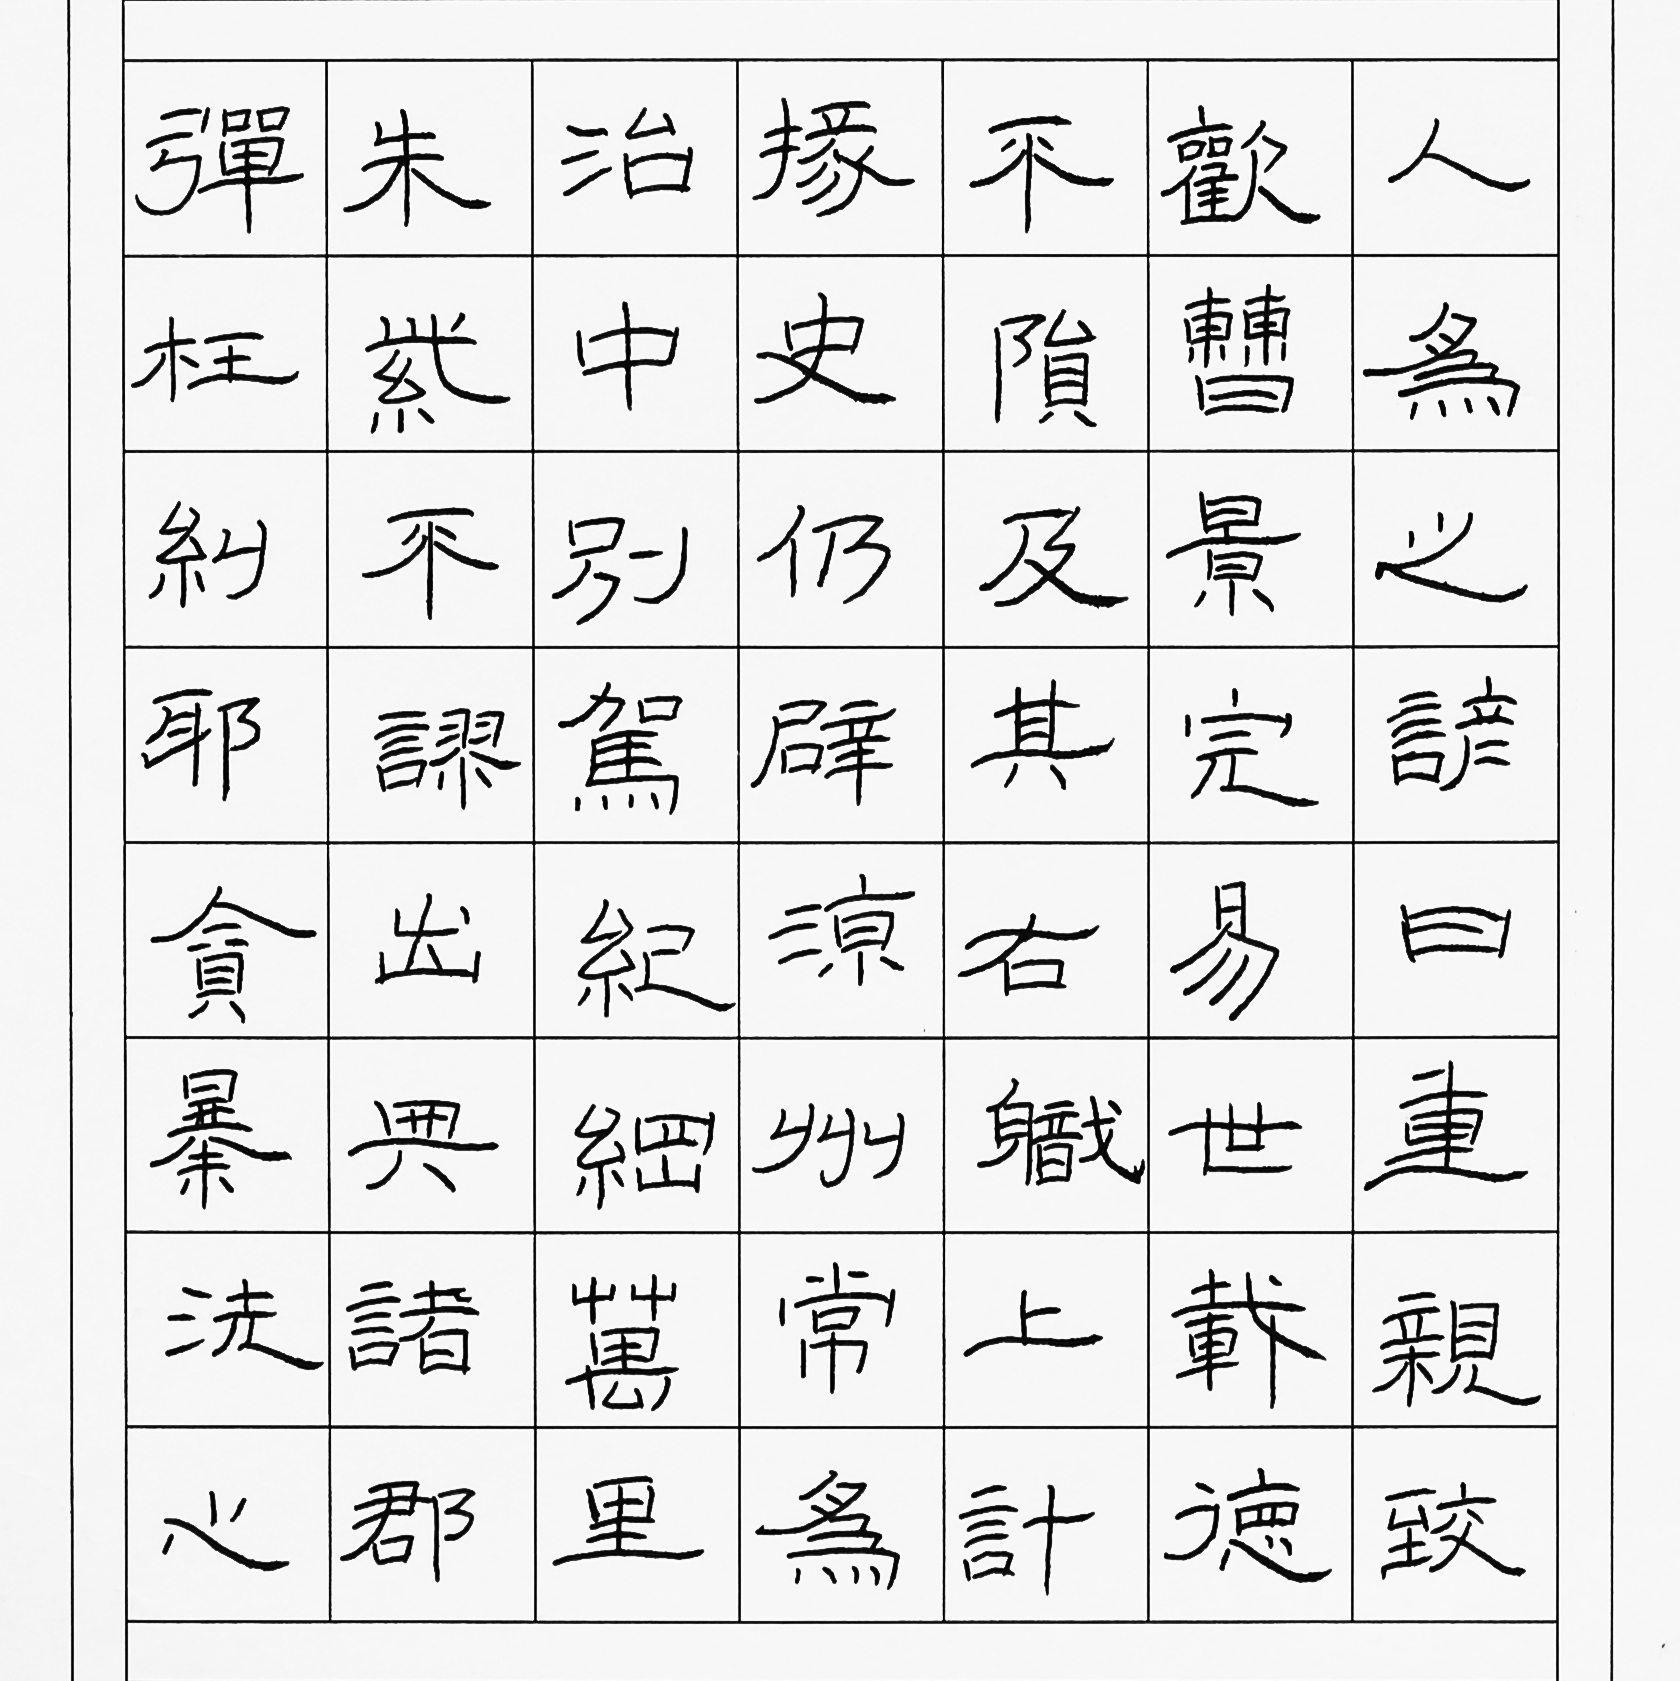 人為之諺曰重親致
歡曹景完易世載德
不隕及其右職上計
掾史仍辟涼州常為
治中別駕紀綱萬里
朱紫不謬出典諸郡
彈枉糾邪貪暴洗心